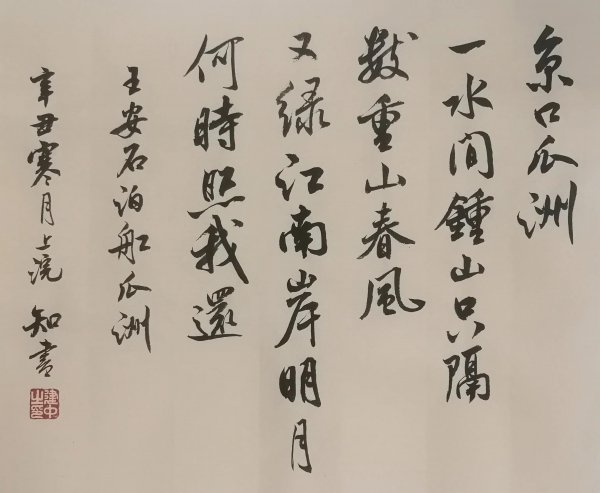 京口瓜洲
一水间鍾山只隔
数重山春風
又绿江南岸明月
何時照我還
王安石泊船瓜洲
辛丑寒月上浣 知書